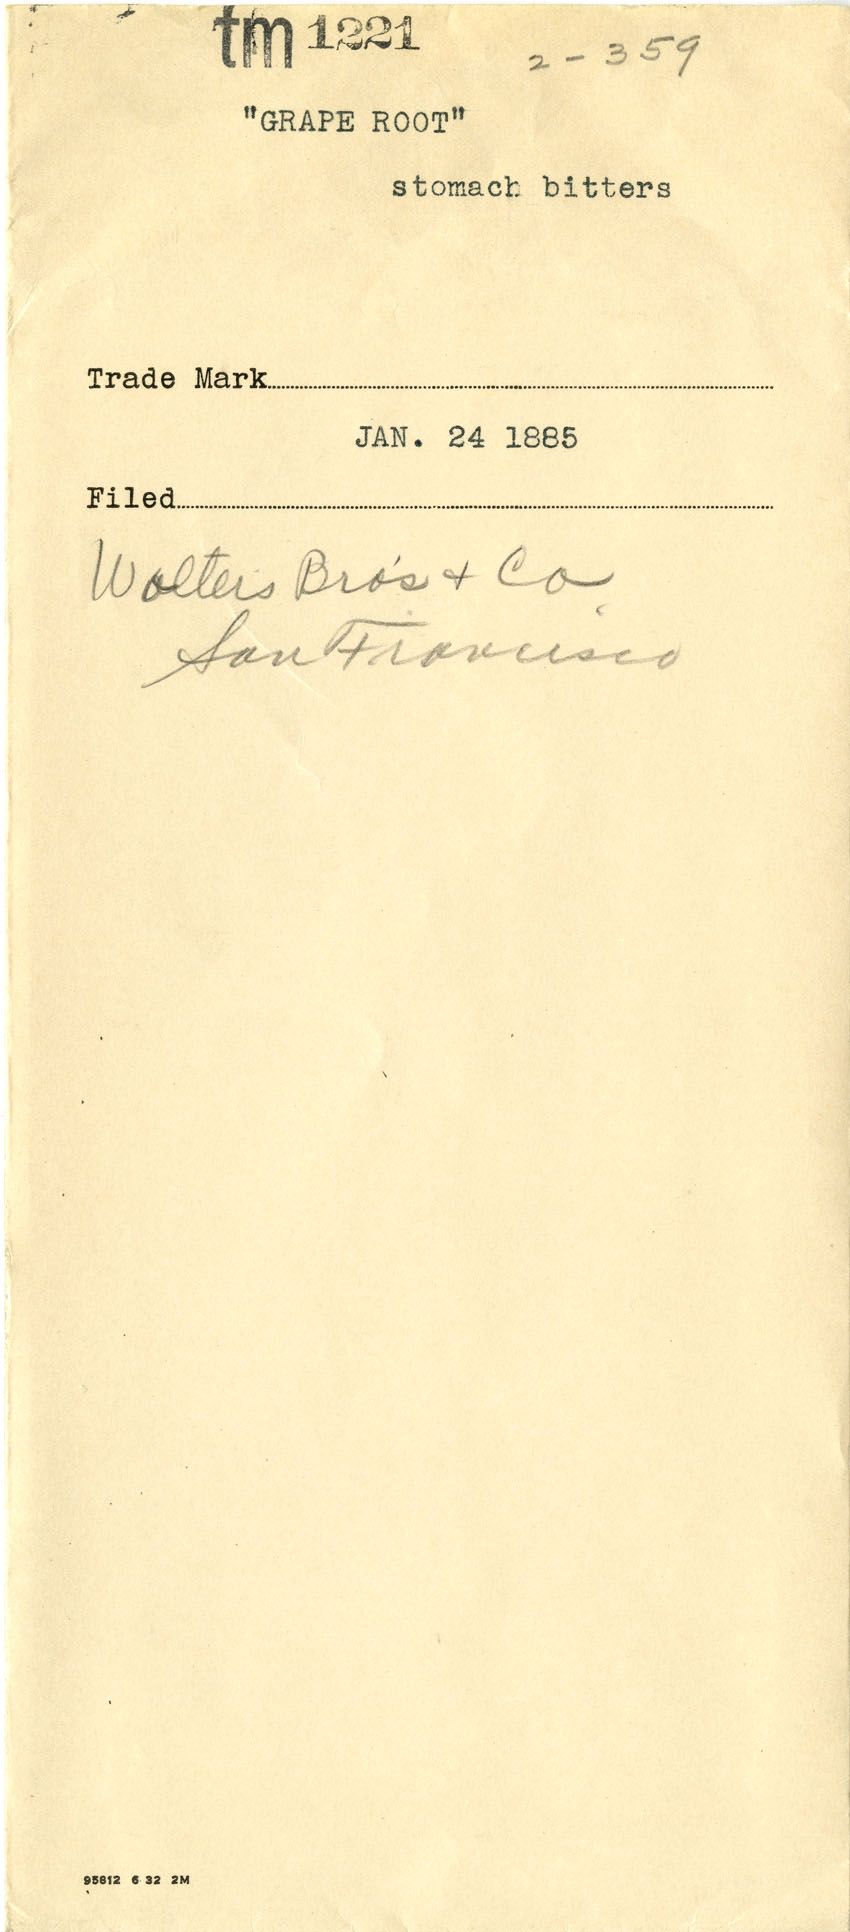 tm 1221
2-359
"GRAPE ROOT"
stomach bitters
Trade Mark
JAN. 24 1885
Filed
Wolters Bro's + Co
San Francisco
95812 6 32 2M